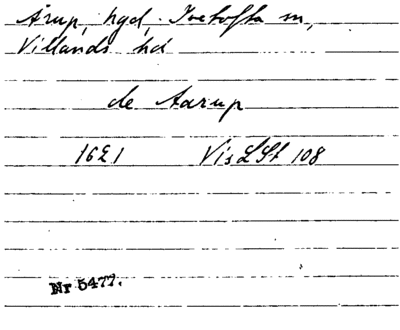 Årup, hgd, Ivetofta sn,
Villands hd
de Aarup
1621 VisLSt 108
Nr 5477.